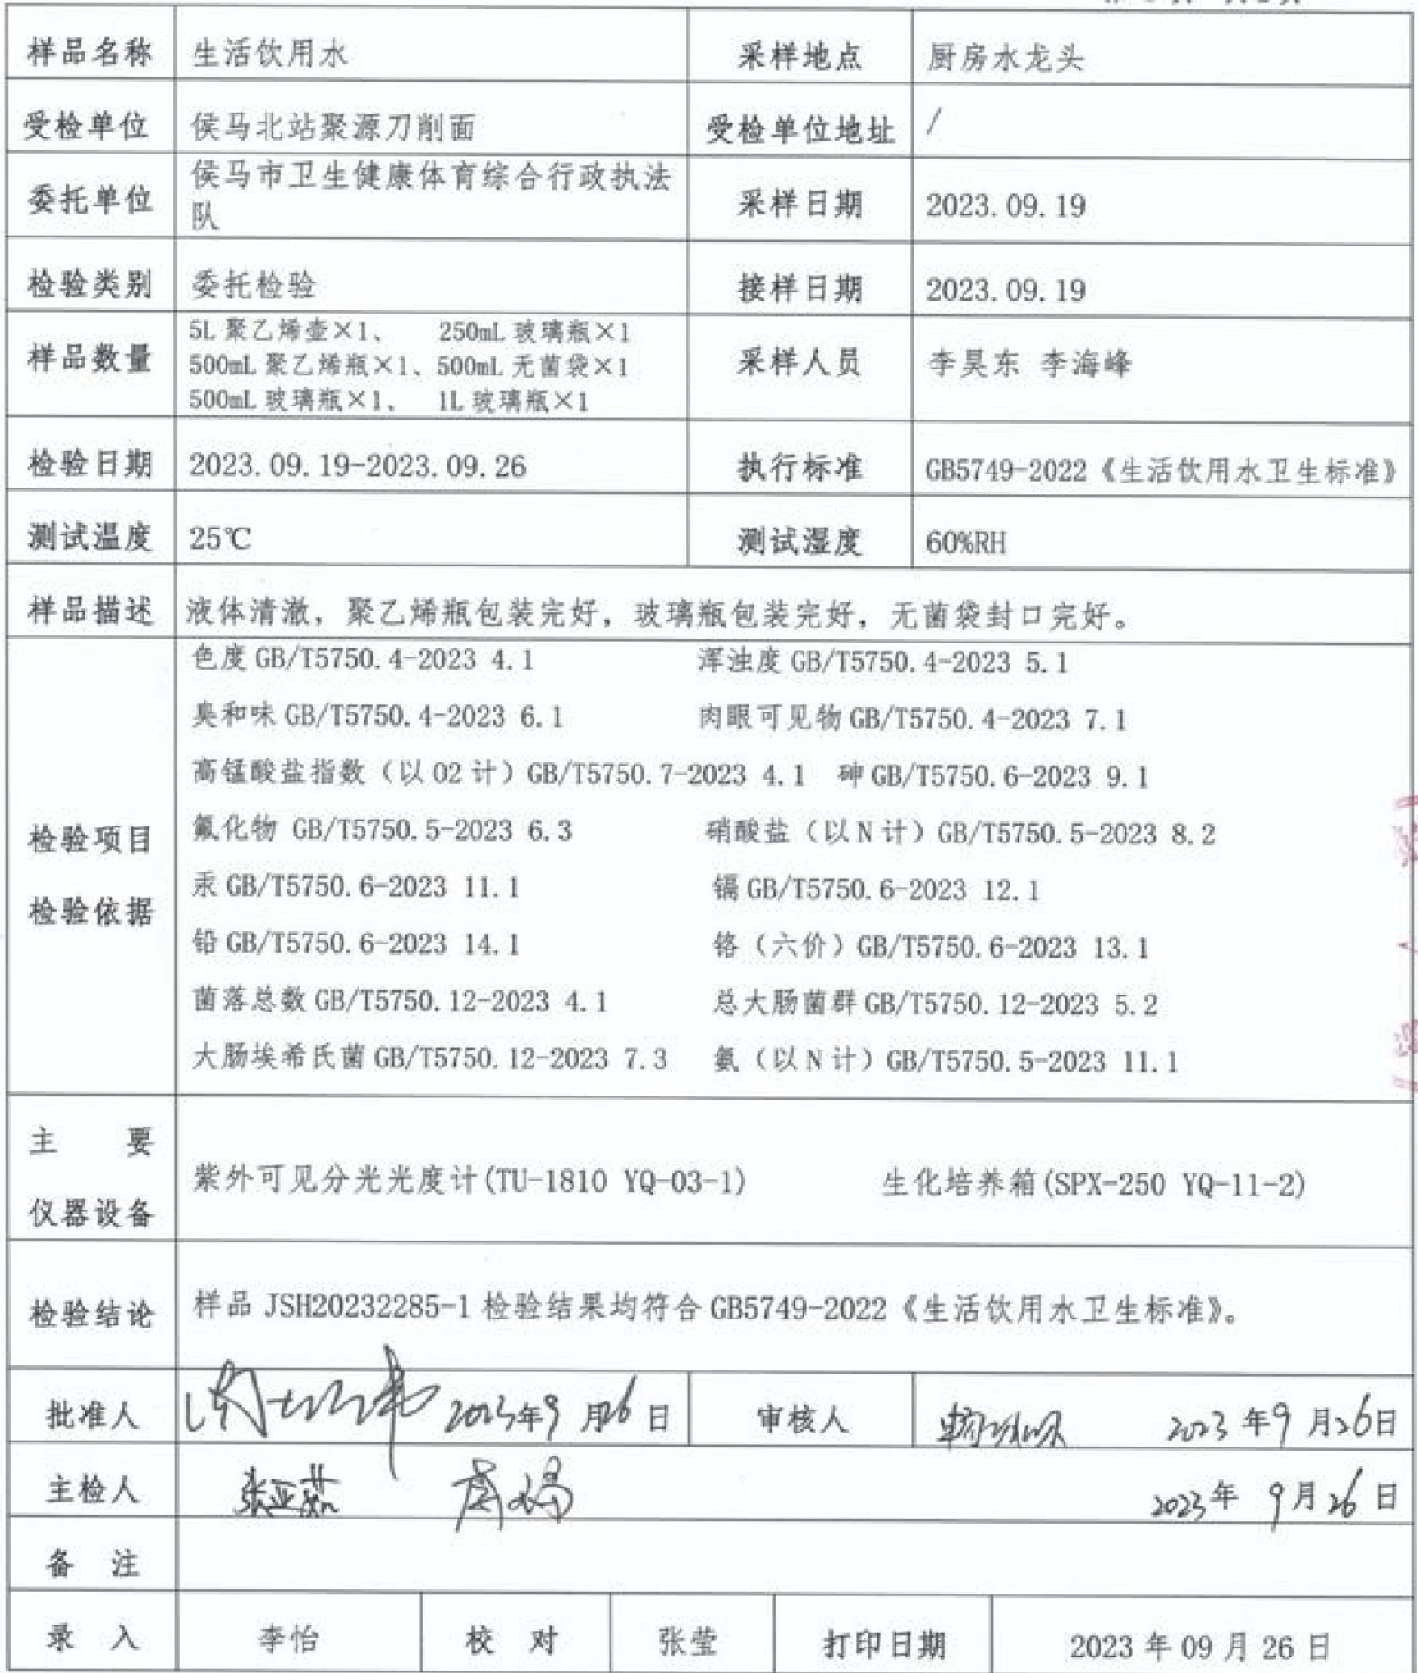 样品名称 生活饮用水 采样地点 厨房水龙头
受检单位 侯马北站聚源刀削面 受检单位地址 /
委托单位 侯马市卫生健康体育综合行政执法队 采样日期 2023.09.19
检验类别 委托检验 接样日期 2023.09.19
样品数量 5L 聚乙烯壶×1、 250mL 玻璃瓶×1
500mL 聚乙烯瓶×1、500mL 无菌袋×1
500mL 玻璃瓶×1、 1L 玻璃瓶×1
采样人员 李昊东 李海峰
检验日期 2023.09.19-2023.09.26 执行标准 GB5749-2022《生活饮用水卫生标准》
测试温度 25℃ 测试湿度 60%RH
样品描述 液体清澈，聚乙烯瓶包装完好，玻璃瓶包装完好，无菌袋封口完好。
检验项目
检验依据
色度 GB/T5750.4-2023 4.1 浑浊度 GB/T5750.4-2023 5.1
臭和味 GB/T5750.4-2023 6.1 肉眼可见物 GB/T5750.4-2023 7.1
高锰酸盐指数（以 O2 计）GB/T5750.7-2023 4.1 砷 GB/T5750.6-2023 9.1
氟化物 GB/T5750.5-2023 6.3 硝酸盐（以 N 计）GB/T5750.5-2023 8.2
汞 GB/T5750.6-2023 11.1 镉 GB/T5750.6-2023 12.1
铅 GB/T5750.6-2023 14.1 铬（六价）GB/T5750.6-2023 13.1
菌落总数 GB/T5750.12-2023 4.1 总大肠菌群 GB/T5750.12-2023 5.2
大肠埃希氏菌 GB/T5750.12-2023 7.3 氨（以 N 计）GB/T5750.5-2023 11.1
主 要
仪器设备
紫外可见分光光度计(TU-1810 YQ-03-1) 生化培养箱(SPX-250 YQ-11-2)
检验结论 样品 JSH20232285-1 检验结果均符合 GB5749-2022《生活饮用水卫生标准》。
批准人 2023年9月26日 审核人 2023年9月26日
主检人 张亚茹 2023年9月26日
备 注
录 入 李怡 校 对 张莹 打印日期 2023 年 09 月 26 日